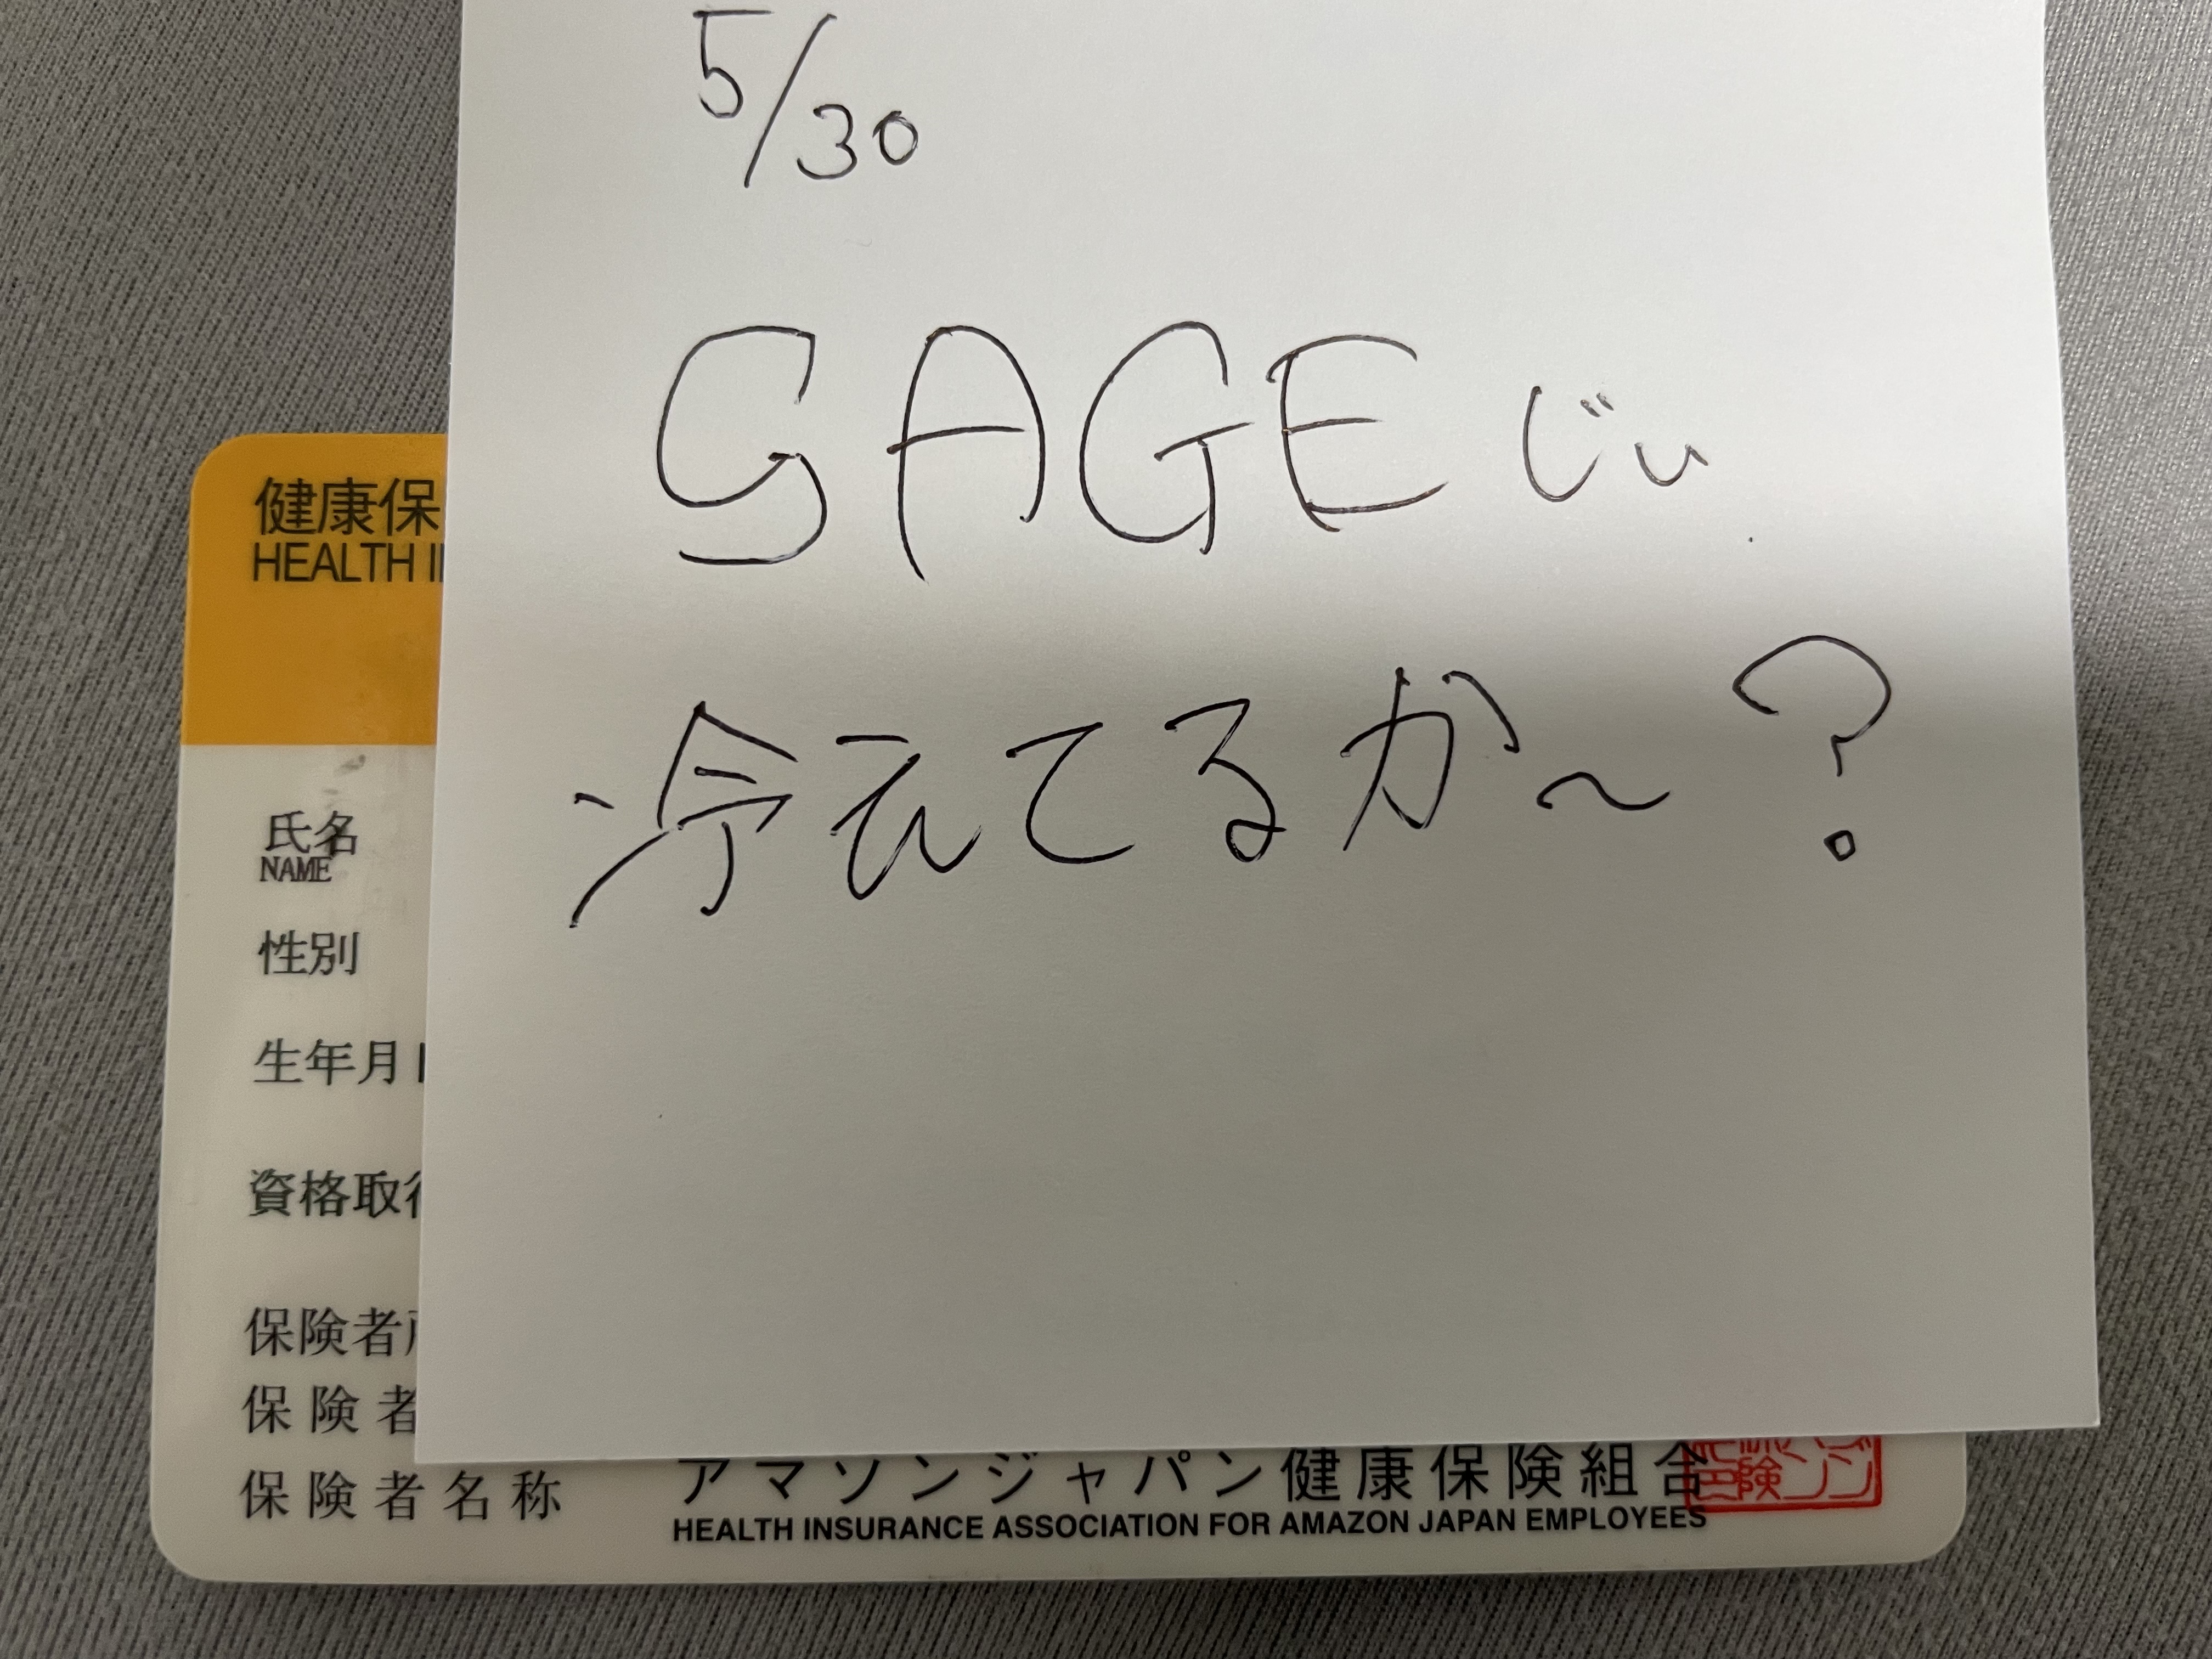 5/30
SAGEじい
冷えてるか〜?
健康保
HEALTH I
氏名
NAME
性別
生年月
資格取
保険者
保険者
保険者名称 アマゾンジャパン健康保険組合
HEALTH INSURANCE ASSOCIATION FOR AMAZON JAPAN EMPLOYEES